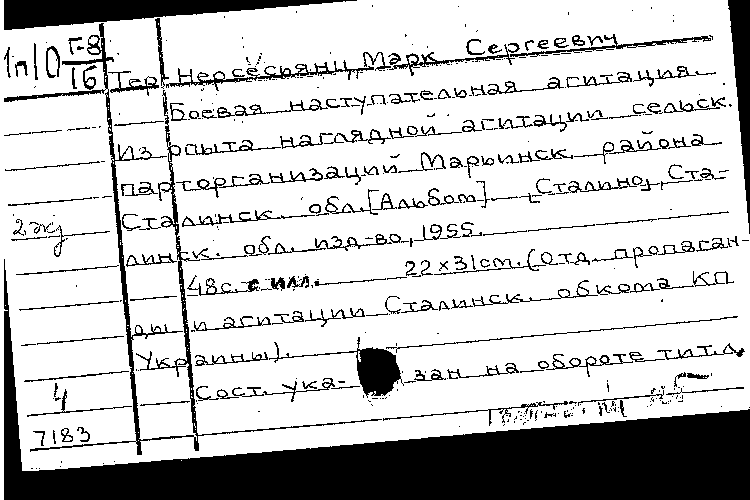 1п/0 Г-8
16
Тер-Нерсесьянц, Марк Сергеевич
Боевая наступательная агитация.
Из опыта наглядной агитации сельск.
парторганизаций Марьинск. района
2 жд
Сталинск. обл. [Альбом]. [Сталино], Ста-
линск. обл. изд-во, 1955.
48с. с илл. 22×31cm. (Отд. пропаган-
ды и агитации Сталинск. обкома КП
Украины).
4
Сост. ука- зан на обороте тит.л.
7183